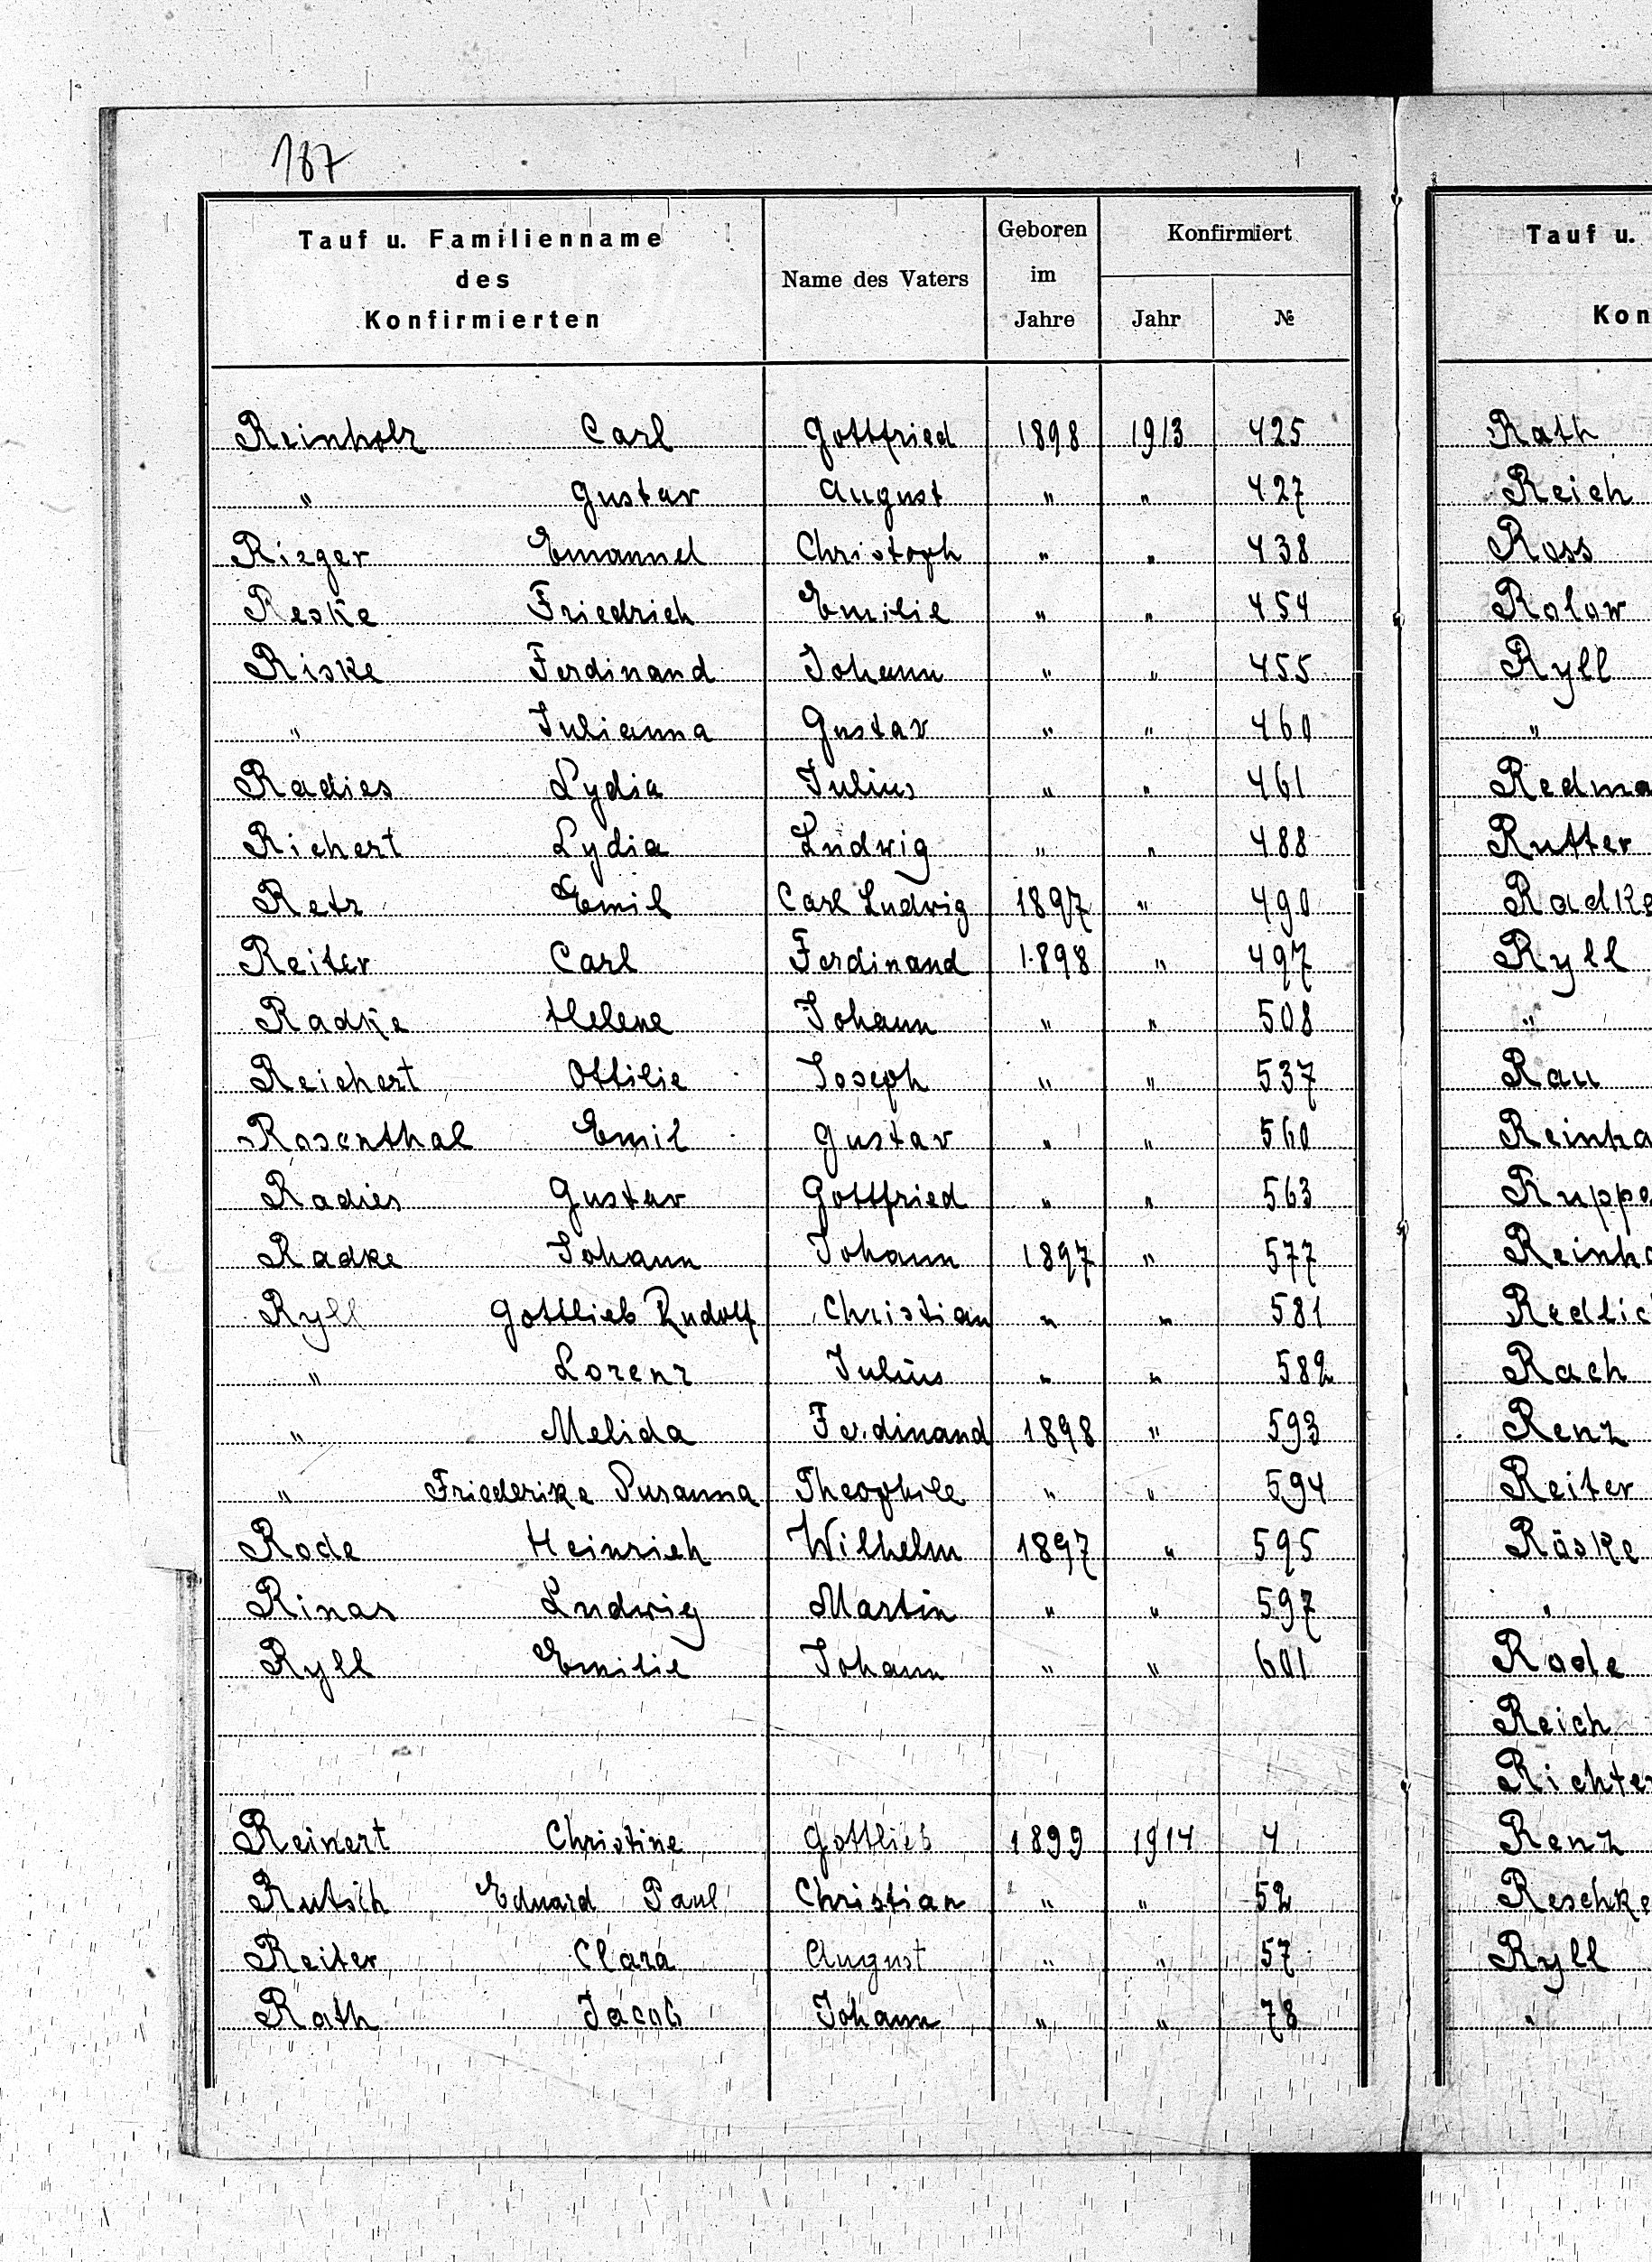 187
Tauf u. Familienname des Konfirmierten Name des Vaters Geboren im Jahre Konfirmiert Jahr №
Reinholz Carl Gottfried 1898 1913 425
" Gustav August " " 427
Rieger Emanuel Christoph " " 438
Reske Friedrich Emilie " " 454
Riske Ferdinand Johann " " 455
" Julianna Gustav " " 460
Radies Lydia Julius " " 461
Richert Lydia Ludwig " " 488
Retz Emil Carl Ludwig 1897 " 490
Reiter Carl Ferdinand 1898 " 497
Radke Helene Johann " " 508
Reichert Ottilie Joseph " " 537
Rosenthal Emil Gustav " " 560
Radies Gustav Gottfried " " 563
Radke Johann Johann 1897 " 577
Ryll Gottlieb Rudolf Christian " " 581
" Lorenz Julius " " 582
" Melida Ferdinand 1898 " 593
" Friederike Susanna Theophile " " 594
Rode Heinrich Wilhelm 1897 " 595
Rinas Ludwig Martin " " 597
Ryll Emilie Johann " " 601
Reinert Christine Gottlieb 1899 1914 4
Rutsch Eduard Paul Christian " " 52
Reiter Clara August " " 57
Rath Jacob Johann " " 78
Tauf u.
Kon
Rath
Reich
Ross
Rolow
Ryll
"
Redma
Rutter
Radke
Ryll
"
Rau
Reinha
Ruppe
Reinho
Redlich
Rach
Renz
Reiter
Räske
"
Rode
Reich
Richter
Renz
Reschke
Ryll
"